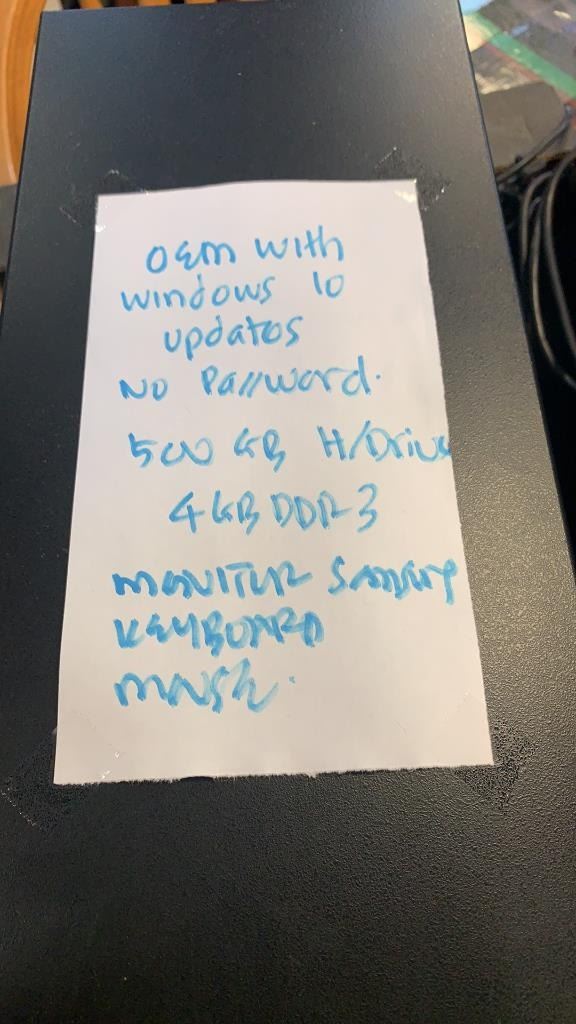 OEM with
windows 10
updates
NO Password.
500 GB H/Drive
4GB DDR3
MONITOR SAMSUNG
KEYBOARD
MOUSE.